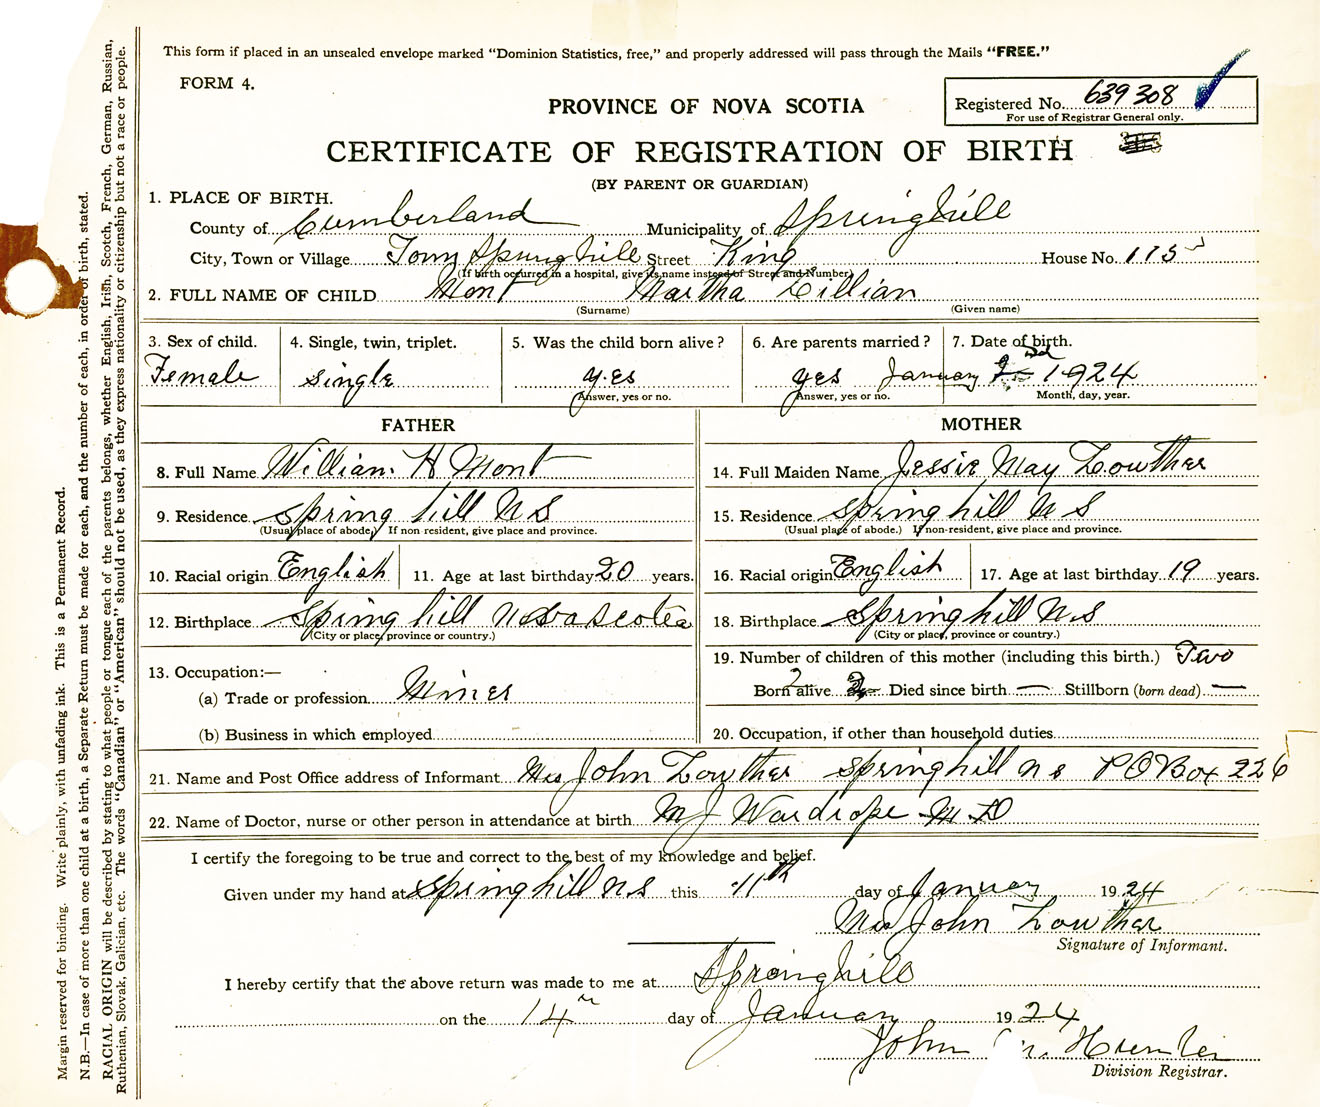 This form if placed in an unsealed envelope marked “Dominion Statistics, free,” and properly addressed will pass through the Mails “FREE.”
FORM 4.
Registered No. 639308
For use of Registrar General only.
PROVINCE OF NOVA SCOTIA
CERTIFICATE OF REGISTRATION OF BIRTH
(BY PARENT OR GUARDIAN)
1. PLACE OF BIRTH.
County of Cumberland Municipality of Springhill
City, Town or Village Town Springhill Street King House No. 115
(If birth occurred in a hospital, give its name instead of Street and Number)
2. FULL NAME OF CHILD Mont Martha Lillian
(Surname) (Given name)
3. Sex of child. 4. Single, twin, triplet. 5. Was the child born alive? 6. Are parents married? 7. Date of birth.
Female single yes yes January 1924
Answer, yes or no. Answer, yes or no. Month, day, year.
FATHER MOTHER
8. Full Name William H Mont 14. Full Maiden Name Jessie May Lowther
9. Residence Spring hill N S 15. Residence Springhill N S
(Usual place of abode.) If non-resident, give place and province. (Usual place of abode.) If non-resident, give place and province.
10. Racial origin English 11. Age at last birthday 20 years. 16. Racial origin English 17. Age at last birthday 19 years.
12. Birthplace Spring hill Nova Scotia 18. Birthplace Springhill N.S
(City or place, province or country.) (City or place, province or country.)
13. Occupation:— 19. Number of children of this mother (including this birth.) Two
(a) Trade or profession Miner Born alive 2 Died since birth — Stillborn (born dead) —
(b) Business in which employed 20. Occupation, if other than household duties
21. Name and Post Office address of Informant Mrs John Lowther Springhill N S P O Box 226
22. Name of Doctor, nurse or other person in attendance at birth M J Wardrope M.D
I certify the foregoing to be true and correct to the best of my knowledge and belief.
Given under my hand at Springhill N.S this 11th day of January 1924
Mrs John Lowther
Signature of Informant.
I hereby certify that the above return was made to me at Springhill
on the 14th day of January 1924
John Hunter
Division Registrar.
Margin reserved for binding. Write plainly, with unfading ink. This is a Permanent Record.
N.B.—In case of more than one child at a birth, a Separate Return must be made for each, and the number of each, in order of birth, stated.
RACIAL ORIGIN will be described by stating to what people or tongue each of the parents belongs, whether English, Irish, Scotch, French, German, Russian,
Ruthenian, Slovak, Galician, etc. The words “Canadian” or “American” should not be used, as they express nationality or citizenship but not a race or people.